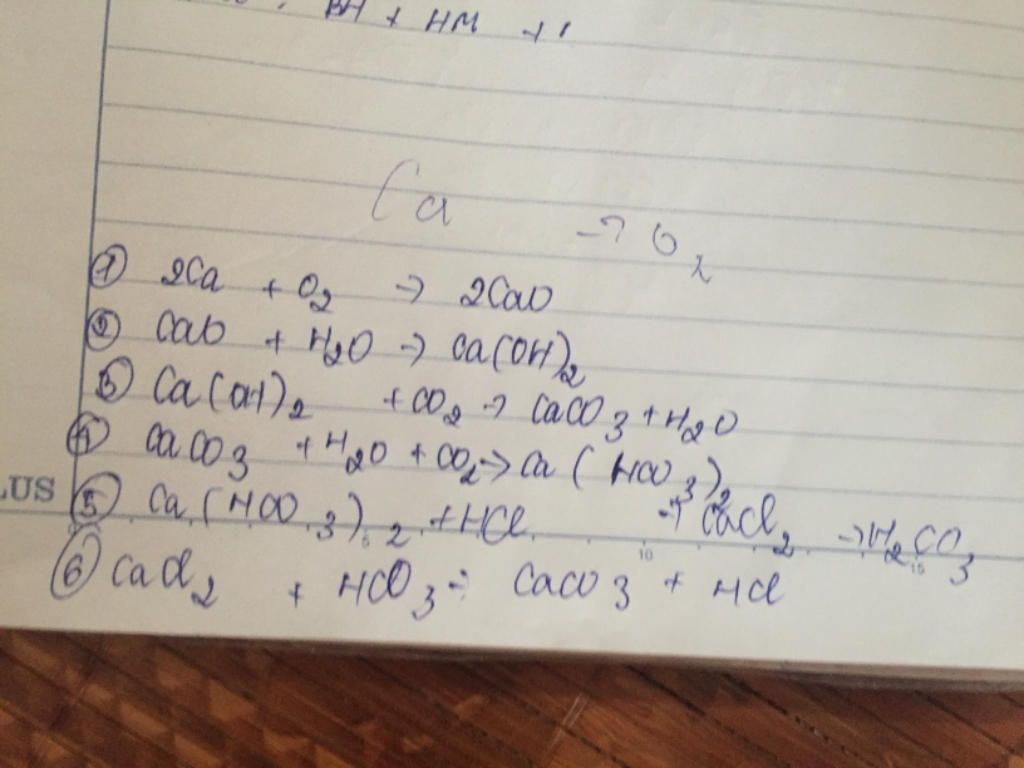 BH + HM +
Ca → O2
① 2Ca + O2 → 2CaO
② CaO + H2O → Ca(OH)2
③ Ca(OH)2 + CO2 → CaCO3 + H2O
④ CaCO3 + H2O + CO2 → Ca(HCO3)2
LUS
⑤ Ca(HCO3)2 + HCl → CaCl2 → H2CO3
10 15
⑥ CaCl2 + HCO3 → CaCO3 + HCl